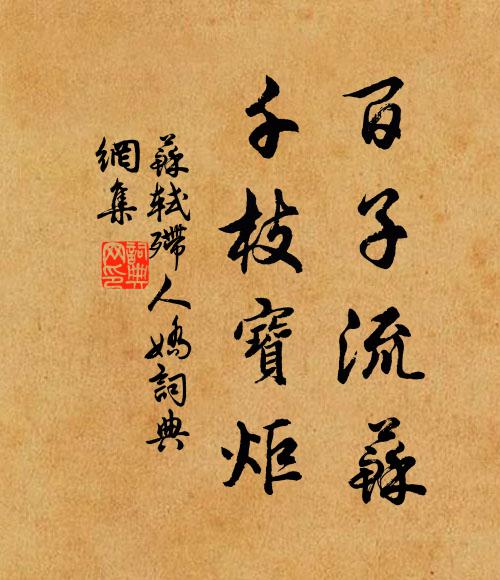 百子流蘇
千枝寶炬
蘇軾殢人嬌詞典
網集
詞典网印